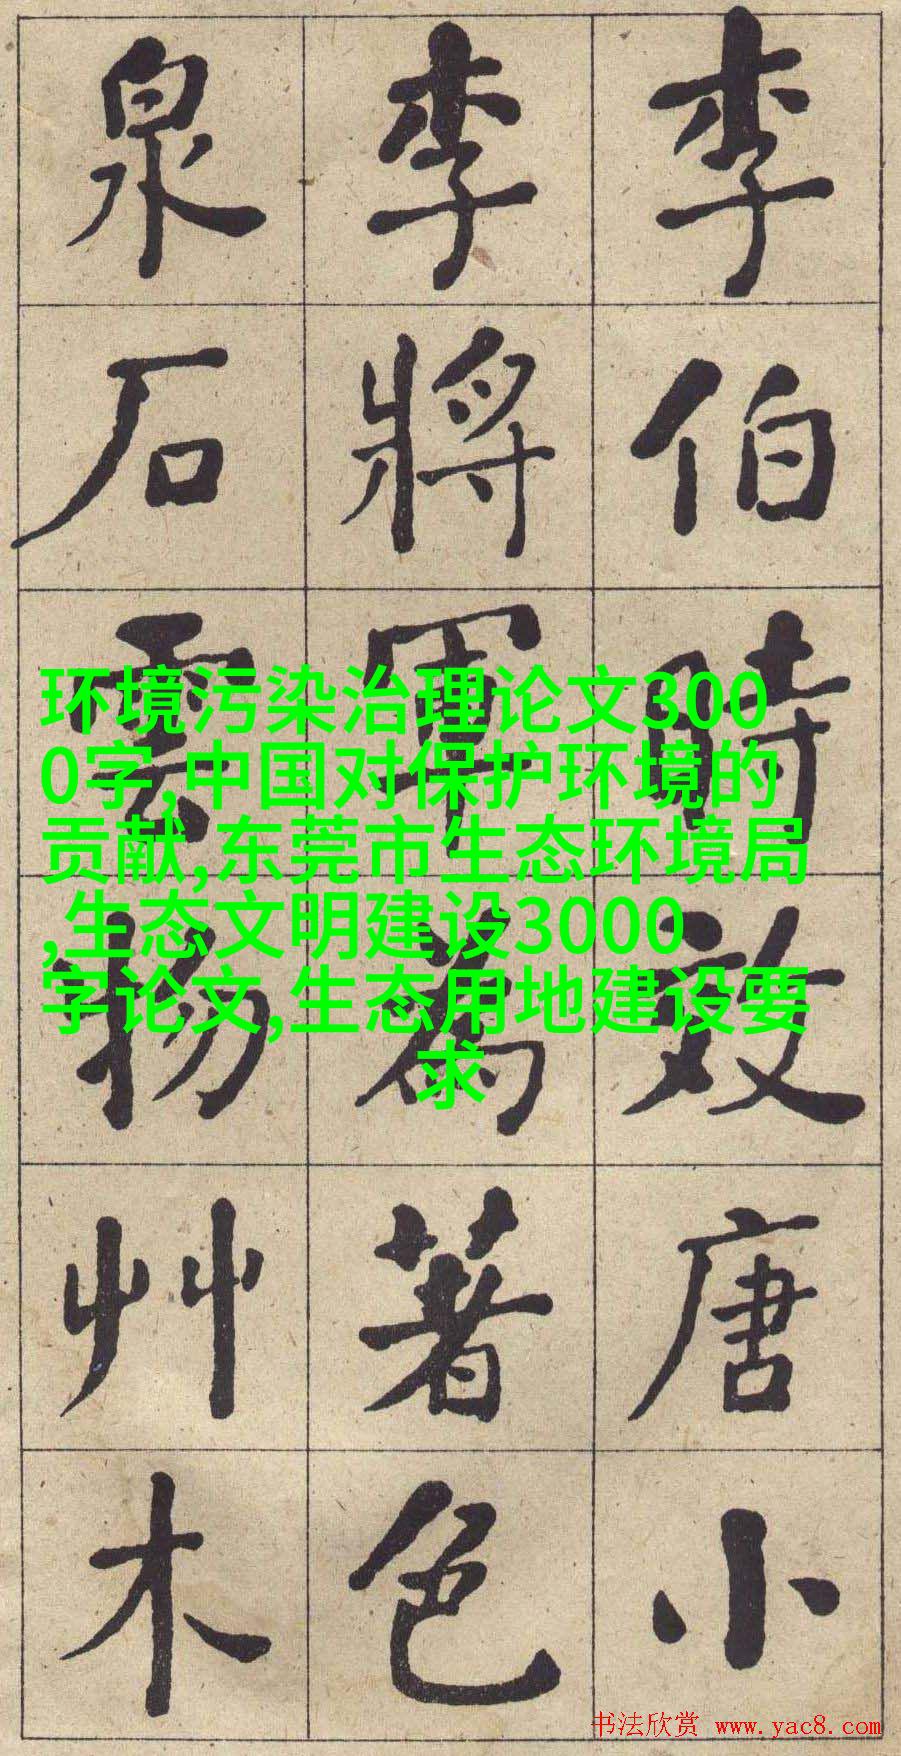 李伯時效唐小
李將軍為著色
泉石雲物艸木
环境污染治理论文300
0字,中国对保护环境的
贡献,东莞市生态环境局
,生态文明建设3000
字论文,生态用地建设要
求
书法欣赏 www.yac8.com